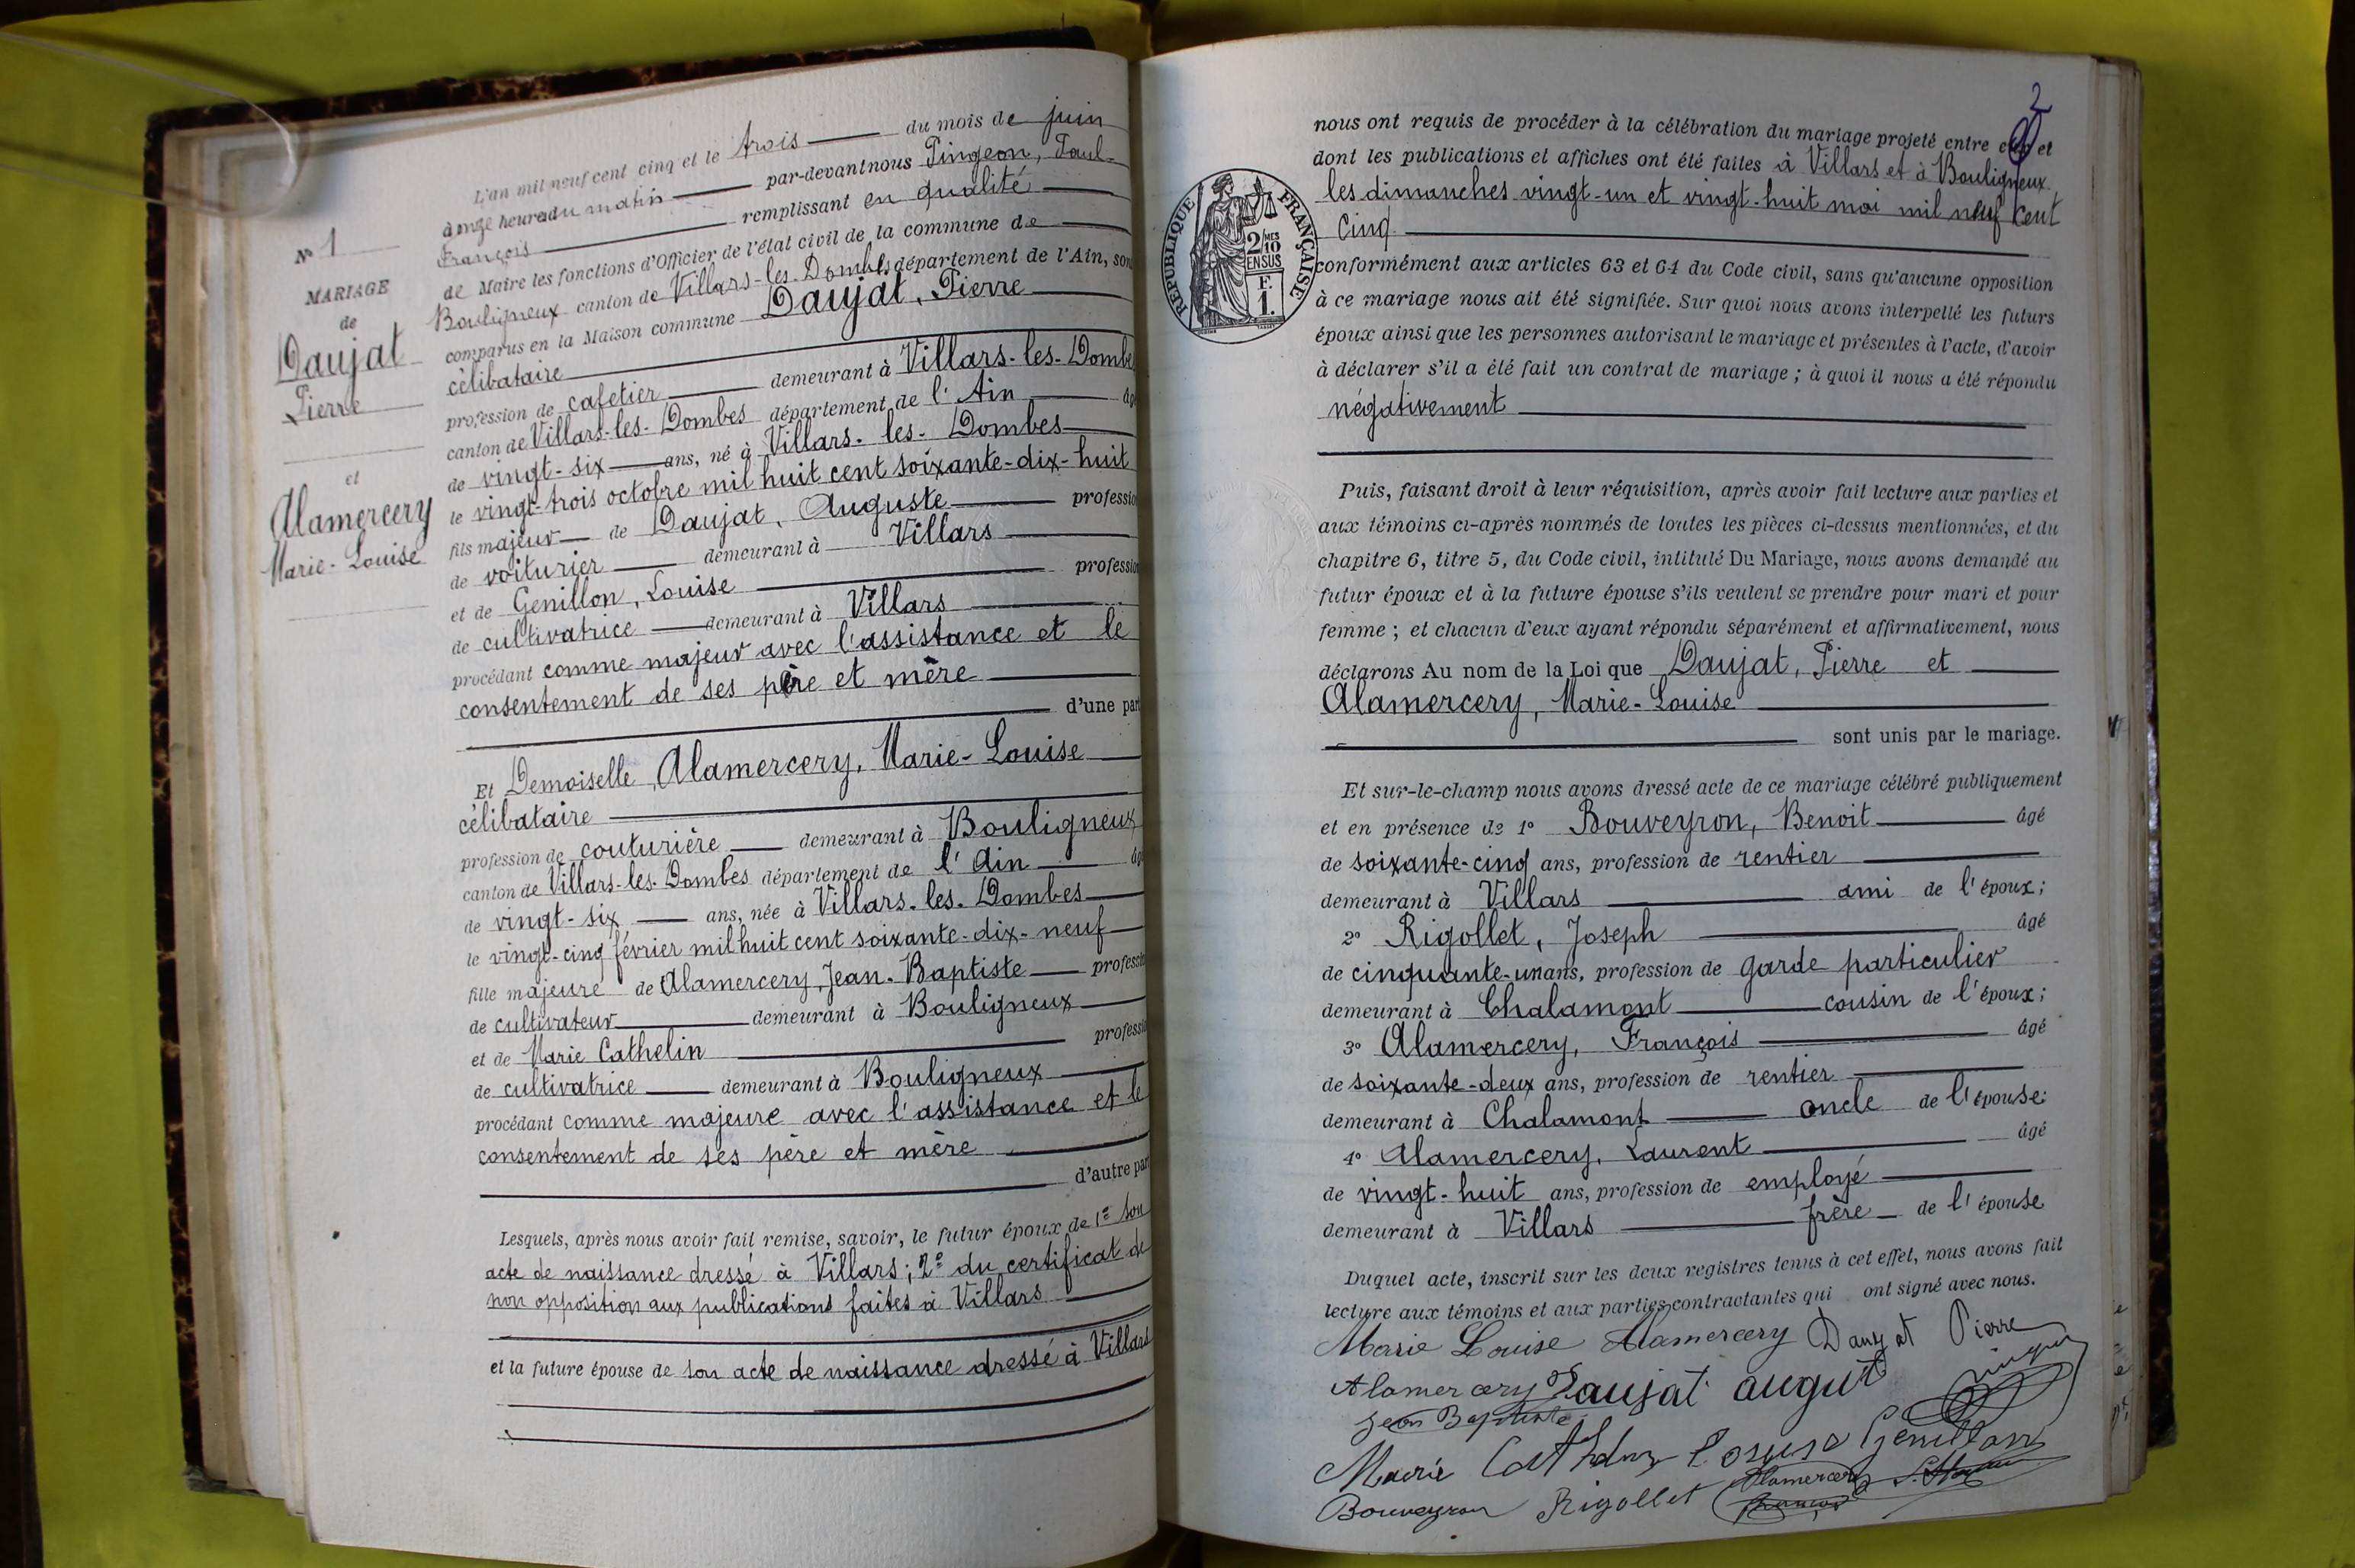 L'an mil neuf cent cinq et le trois du mois de juin
à onze heures du matin par-devant nous Pingeon, Paul-
François remplissant en qualité
de Maire les fonctions d'Officier de l'état civil de la commune de
Bouligneux canton de Villars-les-Dombes département de l'Ain, son
comparus en la Maison commune Daujat, Pierre
célibataire
profession de cafetier demeurant à Villars-les-Dombe
canton de Villars-les-Dombes département de l'Ain âg
de vingt-six ans, né à Villars-les-Dombes
le vingt-trois octobre mil huit cent soixante-dix-huit
fils majeur de Daujat, Auguste professio
de voiturier demeurant à Villars
et de Genillon, Louise professio
de cultivatrice demeurant à Villars
procédant comme majeur avec l'assistance et le
consentement de ses père et mère
d'une part
Et Demoiselle Alamercery, Marie-Louise
célibataire
profession de couturière demeurant à Bouligneux
canton de Villars-les-Dombes département de l'Ain âg
de vingt-six ans, née à Villars-les-Dombes
le vingt-cinq février mil huit cent soixante-dix-neuf
fille majeure de Alamercery, Jean-Baptiste professio
de cultivateur demeurant à Bouligneux
et de Marie Cathelin professio
de cultivatrice demeurant à Bouligneux
procédant comme majeure avec l'assistance et le
consentement de ses père et mère
d'autre part
Lesquels, après nous avoir fait remise, savoir, le futur époux de 1º son
acte de naissance dressé à Villars; 2º du certificat de
non opposition aux publications faites à Villars
et la future épouse de son acte de naissance dressé à Villars
Nº 1
MARIAGE
de
Daujat
Pierre
et
Alamercery
Marie-Louise
2
nous ont requis de procéder à la célébration du mariage projeté entre eux et
dont les publications et affiches ont été faites à Villars et à Bouligneux
les dimanches vingt-un et vingt-huit mai mil neuf cent
cinq
conformément aux articles 63 et 64 du Code civil, sans qu'aucune opposition
à ce mariage nous ait été signifiée. Sur quoi nous avons interpellé les futurs
époux ainsi que les personnes autorisant le mariage et présentes à l'acte, d'avoir
à déclarer s'il a été fait un contrat de mariage ; à quoi il nous a été répondu
négativement
RÉPUBLIQUE FRANÇAISE
2/10 MES
EN SUS
F.
1.
Puis, faisant droit à leur réquisition, après avoir fait lecture aux parties et
aux témoins ci-après nommés de toutes les pièces ci-dessus mentionnées, et du
chapitre 6, titre 5, du Code civil, intitulé Du Mariage, nous avons demandé au
futur époux et à la future épouse s'ils veulent se prendre pour mari et pour
femme ; et chacun d'eux ayant répondu séparément et affirmativement, nous
déclarons Au nom de la Loi que Daujat, Pierre et
Alamercery, Marie-Louise
sont unis par le mariage.
Et sur-le-champ nous avons dressé acte de ce mariage célébré publiquement
et en présence de 1º Bouveyron, Benoit âgé
de soixante-cinq ans, profession de rentier
demeurant à Villars ami de l'époux;
2º Rigollet, Joseph âgé
de cinquante-un ans, profession de garde particulier
demeurant à Chalamont cousin de l'époux;
3º Alamercery, François âgé
de soixante-deux ans, profession de rentier
demeurant à Chalamont oncle de l'épouse;
4º Alamercery, Laurent âgé
de vingt-huit ans, profession de employé
demeurant à Villars frère de l'épouse
Duquel acte, inscrit sur les deux registres tenus à cet effet, nous avons fait
lecture aux témoins et aux parties contractantes qui ont signé avec nous.
Marie Louise Alamercery Daujat Pierre
Alamercery Daujat augut
Jean Baptiste
Marie Louise Genillon
Bouveyron Rigollet Alamercery
François